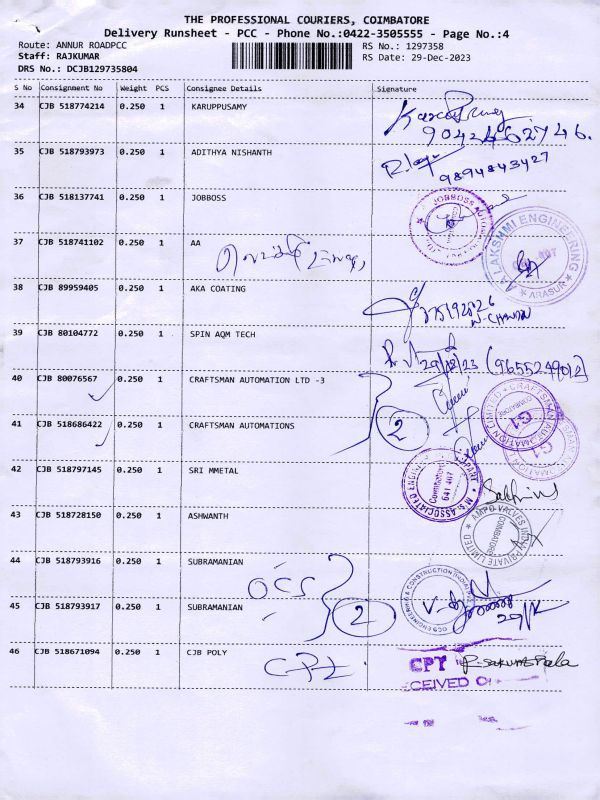 THE PROFESSIONAL COURIERS, COIMBATORE
Delivery Runsheet - PCC - Phone No.:0422-3505555 - Page No.:4
Route: ANNUR ROADPCC RS No.: 1297358
Staff: RAJKUMAR RS Date: 29-Dec-2023
DRS No.: DCJB129735804
S No Consignment No Weight PCS Consignee Details Signature
34 CJB 518774214 0.250 1 KARUPPUSAMY
9042462746.
35 CJB 518793973 0.250 1 ADITHYA NISHANTH
9894843427
36 CJB 518137741 0.250 1 JOBBOSS
JOBBOSS
37 CJB 518741102 0.250 1 AA
LAKSHMI ENGINEERING
ARASUR
38 CJB 89959405 0.250 1 AKA COATING
39 CJB 80104772 0.250 1 SPIN AQM TECH
29/12/23 (9655249012)
40 CJB 80076567 0.250 1 CRAFTSMAN AUTOMATION LTD -3
CRAFTSMAN AUTOMATION LIMITED
COIMBATORE
G1
41 CJB 518686422 0.250 1 CRAFTSMAN AUTOMATIONS
2
G1
42 CJB 518797145 0.250 1 SRI MMETAL
M.S. ASSOCIATED ENGINEERING
Coimbatore
641 407
43 CJB 518728150 0.250 1 ASHWANTH
AMPO VALVES INDIA PRIVATE LIMITED
COIMBATORE
44 CJB 518793916 0.250 1 SUBRAMANIAN
OCS
OCS ENGINEERING & CONSTRUCTION (INDIA)
45 CJB 518793917 0.250 1 SUBRAMANIAN
2
29/12
46 CJB 518671094 0.250 1 CJB POLY
CPI
CPT
CEIVED